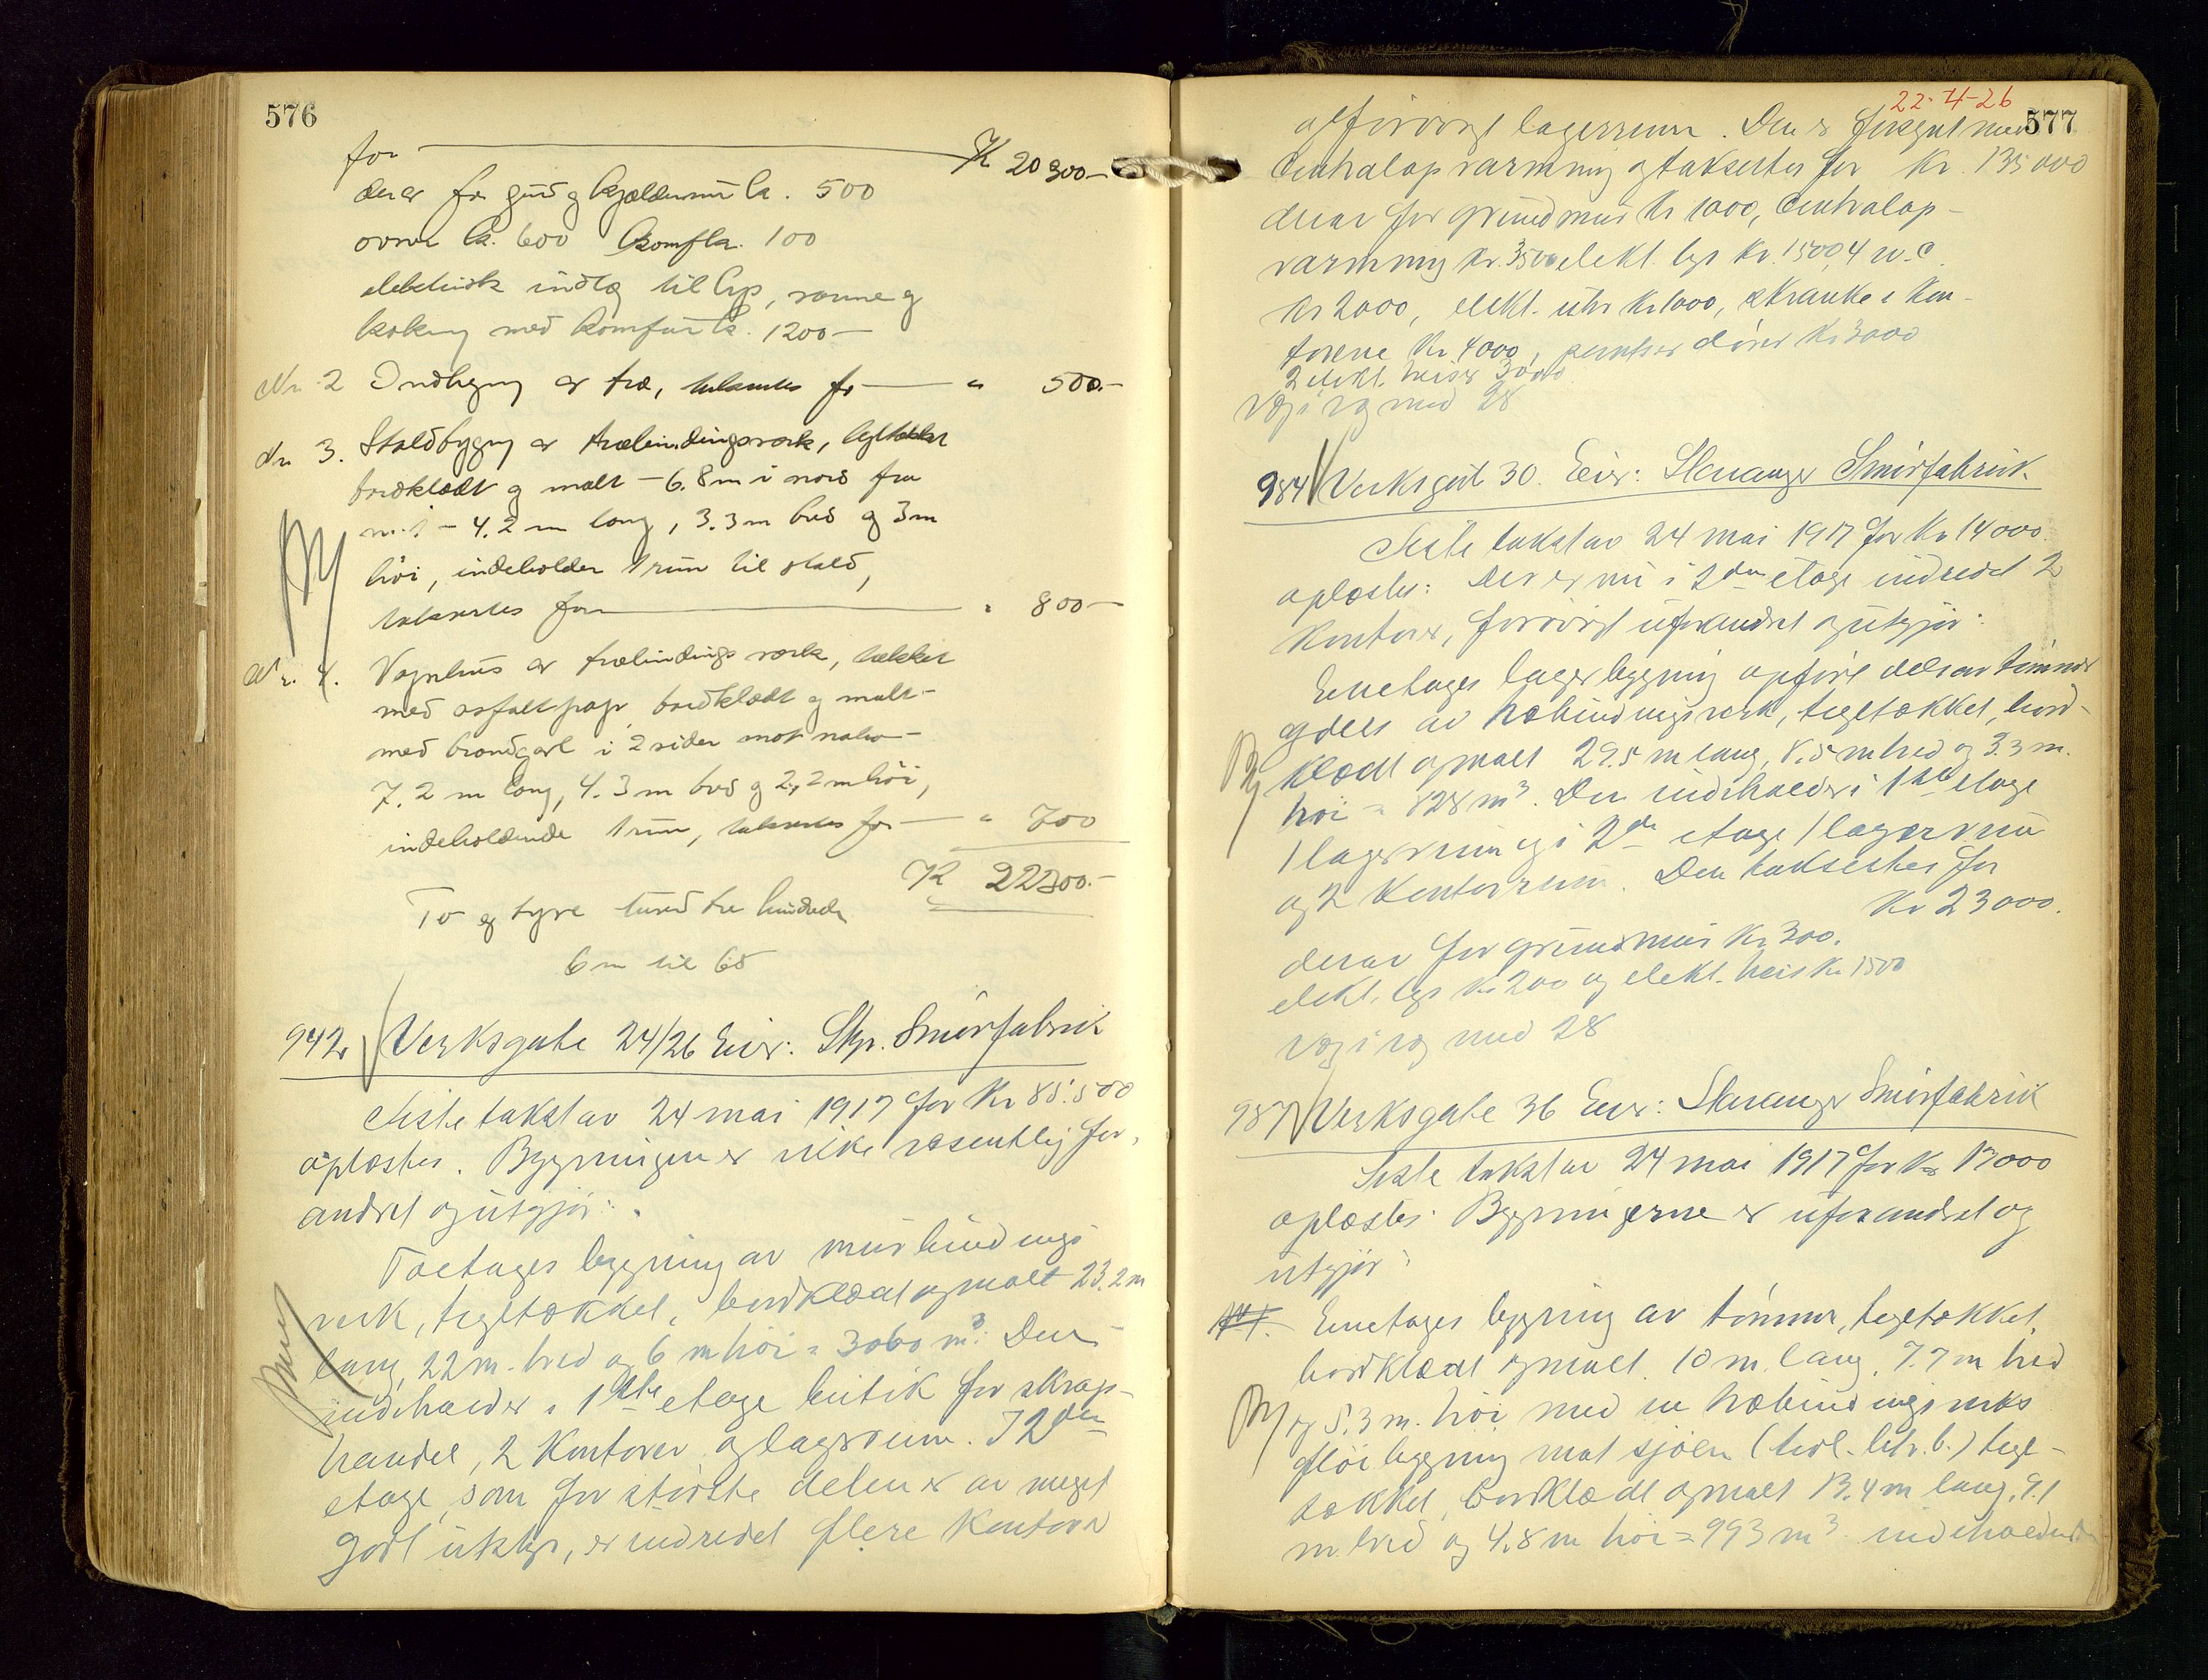 576
for Kr 20300.-
derav for grund og kjeldermur kr. 500
ovner kr. 600 komfkr. 100
elektrisk indlæg til lys, varme og
kokning med komfur kr. 1200 -
Nr. 2 Indhegning av træ, taksertes for " 500.-
Nr. 3. Staldbygning av træbindingsverk, tegltækket
bordklædt og malt - 6.8 m i nord fra
nr. 1 - 4.2 m lang, 3.3 m bred og 3 m
høi, indeholder 1 rum til stald,
taksertes for " 800 -
Nr. 4. Vognhus av træbindingsverk, tækket
med asfaltpap, bordklædt og malt -
med brandgavl i 2 sider mot nabo -
7.2 m lang, 4.3 m bred og 2,2 m høi,
indeholdende 1 rum, taksertes for " 700
Kr 22300.-
To og tyve tused tre hundrede
6 m til 68
942. Verksgate 24/26 Eier: Stgr. Smørfabrik
Siste takst av 24 mai 1917 for Kr 85.500
oplæstes. Bygningen er ikke væsentlig for-
andret og utgjør:
Toetages bygning av murbindings
verk, tegltækket, bordklædt og malt 23.2 m
lang, 22 m. bred og 6 m høi = 3060 m³. Den
indeholder i 1ste etage butik for skrap-
handel, 2 kontorer og lagerrum. I 2den
etage, som for største delen er av meget
godt utstyr, er indredet flere kontorer
22-4-26
577
og forøvrigt lagerrum. Den er forsynt med
Centralopvarming og taksertes for Kr. 135000
derav for grundmur Kr 1000, Centralop-
varming Kr. 3500 elekt. lys Kr. 1500, 4 w.c.
Kr 2000, elekt. uhr Kr. 1000, skranke i kon-
torene Kr 4000, pantser dører Kr 3000
2 elekt. heiser 3000
Væg i væg med 28
984 Verksgt 30. Eier: Stavanger Smørfabrik.
Siste takst av 24 mai 1917 for Kr 14000.
oplæstes: Der er nu i 2den etage indredet 2
kontorer, forøvrigt uforandret og utgjør:
Enetages lagerbygning opført dels av tømmer
og dels av træbindingsverk, tegltækket, bord-
klædt og malt 29.5 m lang, 8.5 m bred og 3.3 m.
høi = 828 m³. Den indeholder i 1ste etage
1 lagerrum og i 2de etage 1 lagerrum
og 2 kontorrum. Den taksertes for
Kr 23000.
derav for grundmur Kr 300.
elekt. lys Kr 200 og elekt. heis Kr 1500
væg i væg med 28
987 Verksgate 36 Eier: Stavanger Smørfabrik
Siste takst av 24 mai 1917 for Kr 17000
oplæstes. Bygningerne er uforandret og
utgjør:
Enetages bygning av tømmer, tegltækket,
bordklædt og malt. 10 m. lang, 7.7 m bred
og 5.3 m. høi med en træbindingsverks
fløibygning mot sjøen (tidl. litr. b.) tegl-
tækket, bordklædt og malt 13.4 m lang, 9.1
m bred og 4.8 m høi = 993 m³ indeholdende